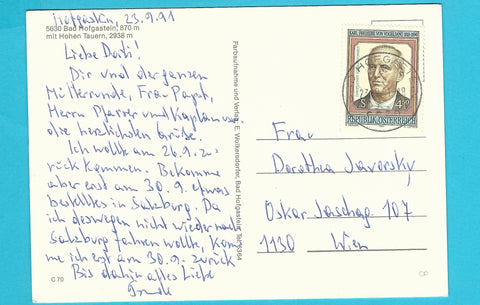 Hofgastein, 23.9.91
5630 Bad Hofgastein, 870 m
mit Hohen Tauern, 2938 m
Liebe Dorli!
Dir und der ganzen
Mütterrunde, Frau
Herrn Pfarrer und Kaplan
die herzlichsten Grüße.
Ich wollte am 26.9. zu-
rück kommen. Bekomme
aber erst am 30.9. etwas
bestelltes in Salzburg. Da
ich deswegen nicht wieder nach
Salzburg fahren wollte, kom-
me ich erst am 30.9. zurück
Bis dahin alles Liebe
C 70
Farbaufnahme und Verlag E. Wolkersdorfer, Bad Hofgastein
REPUBLIK ÖSTERREICH
S 4.50
Frau
Dorothea Javorsky
Oskar Jascha g. 107
1130 Wien